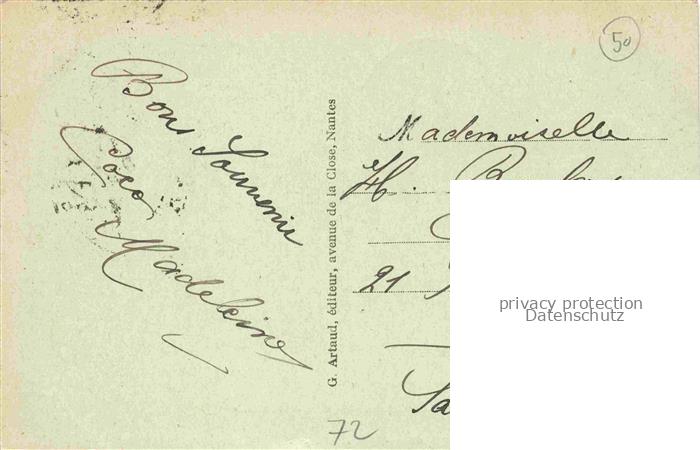 50
Bon Souvenir
Coco
Madeleine
G. Artaud, éditeur, avenue de la Close, Nantes
Mademoiselle
H.
21
72
privacy protection
Datenschutz